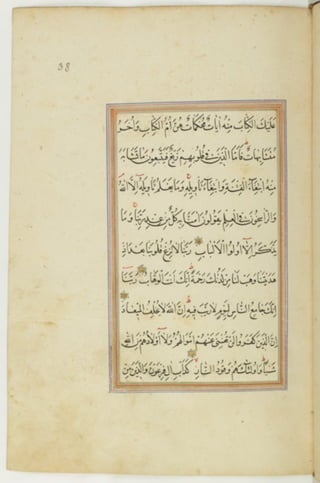 38
عَلَيْكَ الْكِتَابَ مِنْهُ آيَاتٌ مُحْكَمَاتٌ هُنَّ أُمُّ الْكِتَابِ وَأُخَرُ
مُتَشَابِهَاتٌ فَأَمَّا الَّذِينَ فِي قُلُوبِهِمْ زَيْغٌ فَيَتَّبِعُونَ مَا تَشَابَهَ
مِنْهُ ابْتِغَاءَ الْفِتْنَةِ وَابْتِغَاءَ تَأْوِيلِهِ وَمَا يَعْلَمُ تَأْوِيلَهُ إِلَّا اللهُ
وَالرَّاسِخُونَ فِي الْعِلْمِ يَقُولُونَ آمَنَّا بِهِ كُلٌّ مِنْ عِنْدِ رَبِّنَا وَمَا
يَذَّكَّرُ إِلَّا أُولُوا الْأَلْبَابِ رَبَّنَا لَا تُزِغْ قُلُوبَنَا بَعْدَ إِذْ
هَدَيْتَنَا وَهَبْ لَنَا مِنْ لَدُنْكَ رَحْمَةً إِنَّكَ أَنْتَ الْوَهَّابُ رَبَّنَا
إِنَّكَ جَامِعُ النَّاسِ لِيَوْمٍ لَا رَيْبَ فِيهِ إِنَّ اللهَ لَا يُخْلِفُ الْمِيعَادَ
إِنَّ الَّذِينَ كَفَرُوا لَنْ تُغْنِيَ عَنْهُمْ أَمْوَالُهُمْ وَلَا أَوْلَادُهُمْ مِنَ اللهِ
شَيْئًا وَأُولَئِكَ هُمْ وَقُودُ النَّارِ كَدَأْبِ آلِ فِرْعَوْنَ وَالَّذِينَ مِنْ